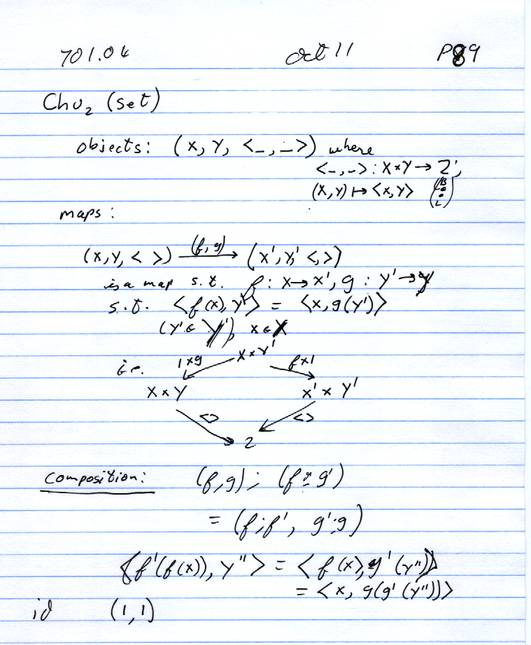 701.04 Oct 11 P89
Chu₂ (set)
objects: (X, Y, <_,_>) where
<_,_> : X×Y → 2;
(x,y) ↦ <x,y>
maps:
(X,Y,< >) —(f,g)→ (X',Y',<,>)
is a map s.t. f: X→X', g: Y'→Y
s.t. <f(x),y'> = <x,g(y')>
(y'∈Y'), x∈X
i.e. X×Y'
1×g f×1
X×Y X'×Y'
<> <>
2
composition: (f,g); (f',g')
= (f;f', g';g)
<f'(f(x)), y''> = <f(x), g'(y'')>
= <x, g(g'(y''))>
id (1,1)